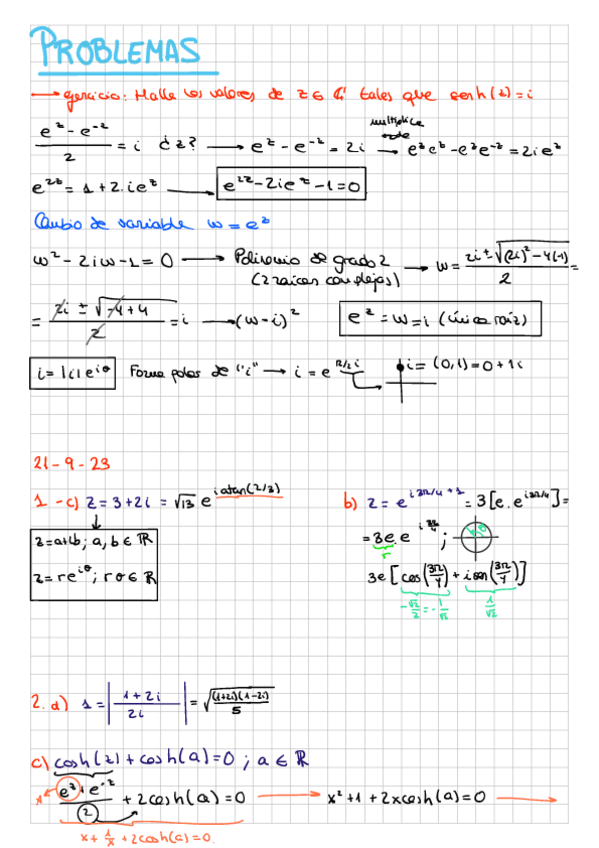 PROBLEMAS
→ ejercicio: Halle los valores de z ∈ ℂ tales que senh(z) = i
(e^z - e^-z)/2 = i ¿z? → e^z - e^-z = 2i multiplica → e^z e^z - e^z e^-z = 2i e^z
e^2z = 1 + 2·i e^z → e^2z - 2i e^z - 1 = 0
Cambio de variable w = e^z
w² - 2iw - 1 = 0 → Polinomio de grado 2 (2 raices complejas) → w = (2i ± √((2i)² - 4(-1)))/2 =
= (2i ± √(-4+4))/2 = i → (w - i)² e^z = w = i (única raíz)
i = |i| e^iθ Forma polar de "i" → i = e^(π/2 i) i = (0,1) = 0 + 1i
21-9-23
1-c) z = 3 + 2i = √13 e^(i atan(2/3)) b) z = e^(i3π/4 + 1) = 3[e·e^(i3π/4)] =
z = a + ib; a, b ∈ ℝ = 3e e^(i 3π/4);
r
z = r e^iθ; r θ ∈ ℝ 3e [cos(3π/4) + i sen(3π/4)]
-√2/2 = -1/√2 1/√2
2. a) 1 = |(1 + 2i)/2i| = √((1+2i)(1-2i)/5)
c) cosh(z) + cosh(a) = 0; a ∈ ℝ
x (e^z + e^-z)/2 + 2cosh(a) = 0 → x² + 1 + 2x cosh(a) = 0 →
x + 1/x + 2cosh(a) = 0.